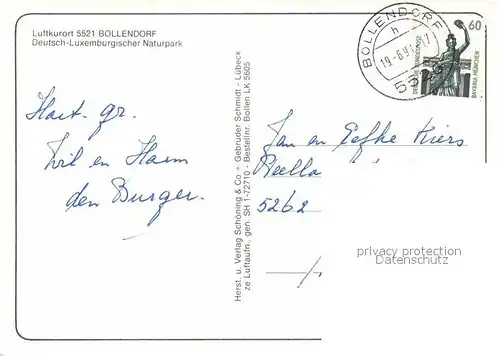 Luftkurort 5521 BOLLENDORF
Deutsch-Luxemburgischer Naturpark
BOLLENDORF
h
5526
60
DEUTSCHE BUNDESPOST
BAYARIA MÜNCHEN
Hart. gr.
Wil en Harm
den Burger.
Herst. u. Verlag Schöning & Co + Gebrüder Schmidt - Lübeck
ze Luftaufn., gen. SH 1-72710 - Bestellnr. Bollen LK 5605
Jan en Eefke Kiers
5262
privacy protection
Datenschutz